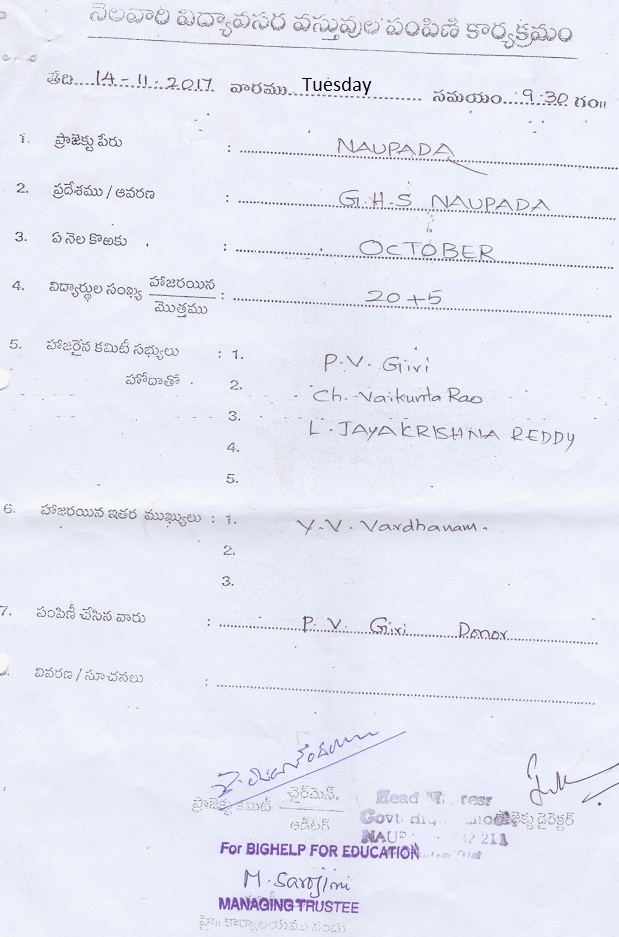 నెలవారి విద్యావసర వస్తువుల పంపిణి కార్యక్రమం
తేది 14-11-2017 వారము Tuesday సమయం 9:30 గం॥
1. ప్రాజెక్టు పేరు : NAUPADA
2. ప్రదేశము / ఆవరణ : G.H.S NAUPADA
3. ఏ నెల కొఱకు : OCTOBER
4. విద్యార్థుల సంఖ్య హాజరయిన / మొత్తము : 20+5
5. హాజరైన కమిటీ సభ్యులు : 1. P.V. Giri
హోదాతో 2. Ch. Vaikunta Rao
3. L. JAYAKRISHNA REDDY
4.
5.
6. హాజరయిన ఇతర ముఖ్యులు : 1. Y.V. Vardhanam.
2.
3.
7. పంపిణీ చేసిన వారు : P. V. Giri Donor
వివరణ / సూచనలు :
ప్రాజెక్టు కమిటీ చైర్‌మెన్, / ఆడిటర్
Head
Govt. డైరెక్టర్
211
For BIGHELP FOR EDUCATION
M. Sarojini
MANAGING TRUSTEE